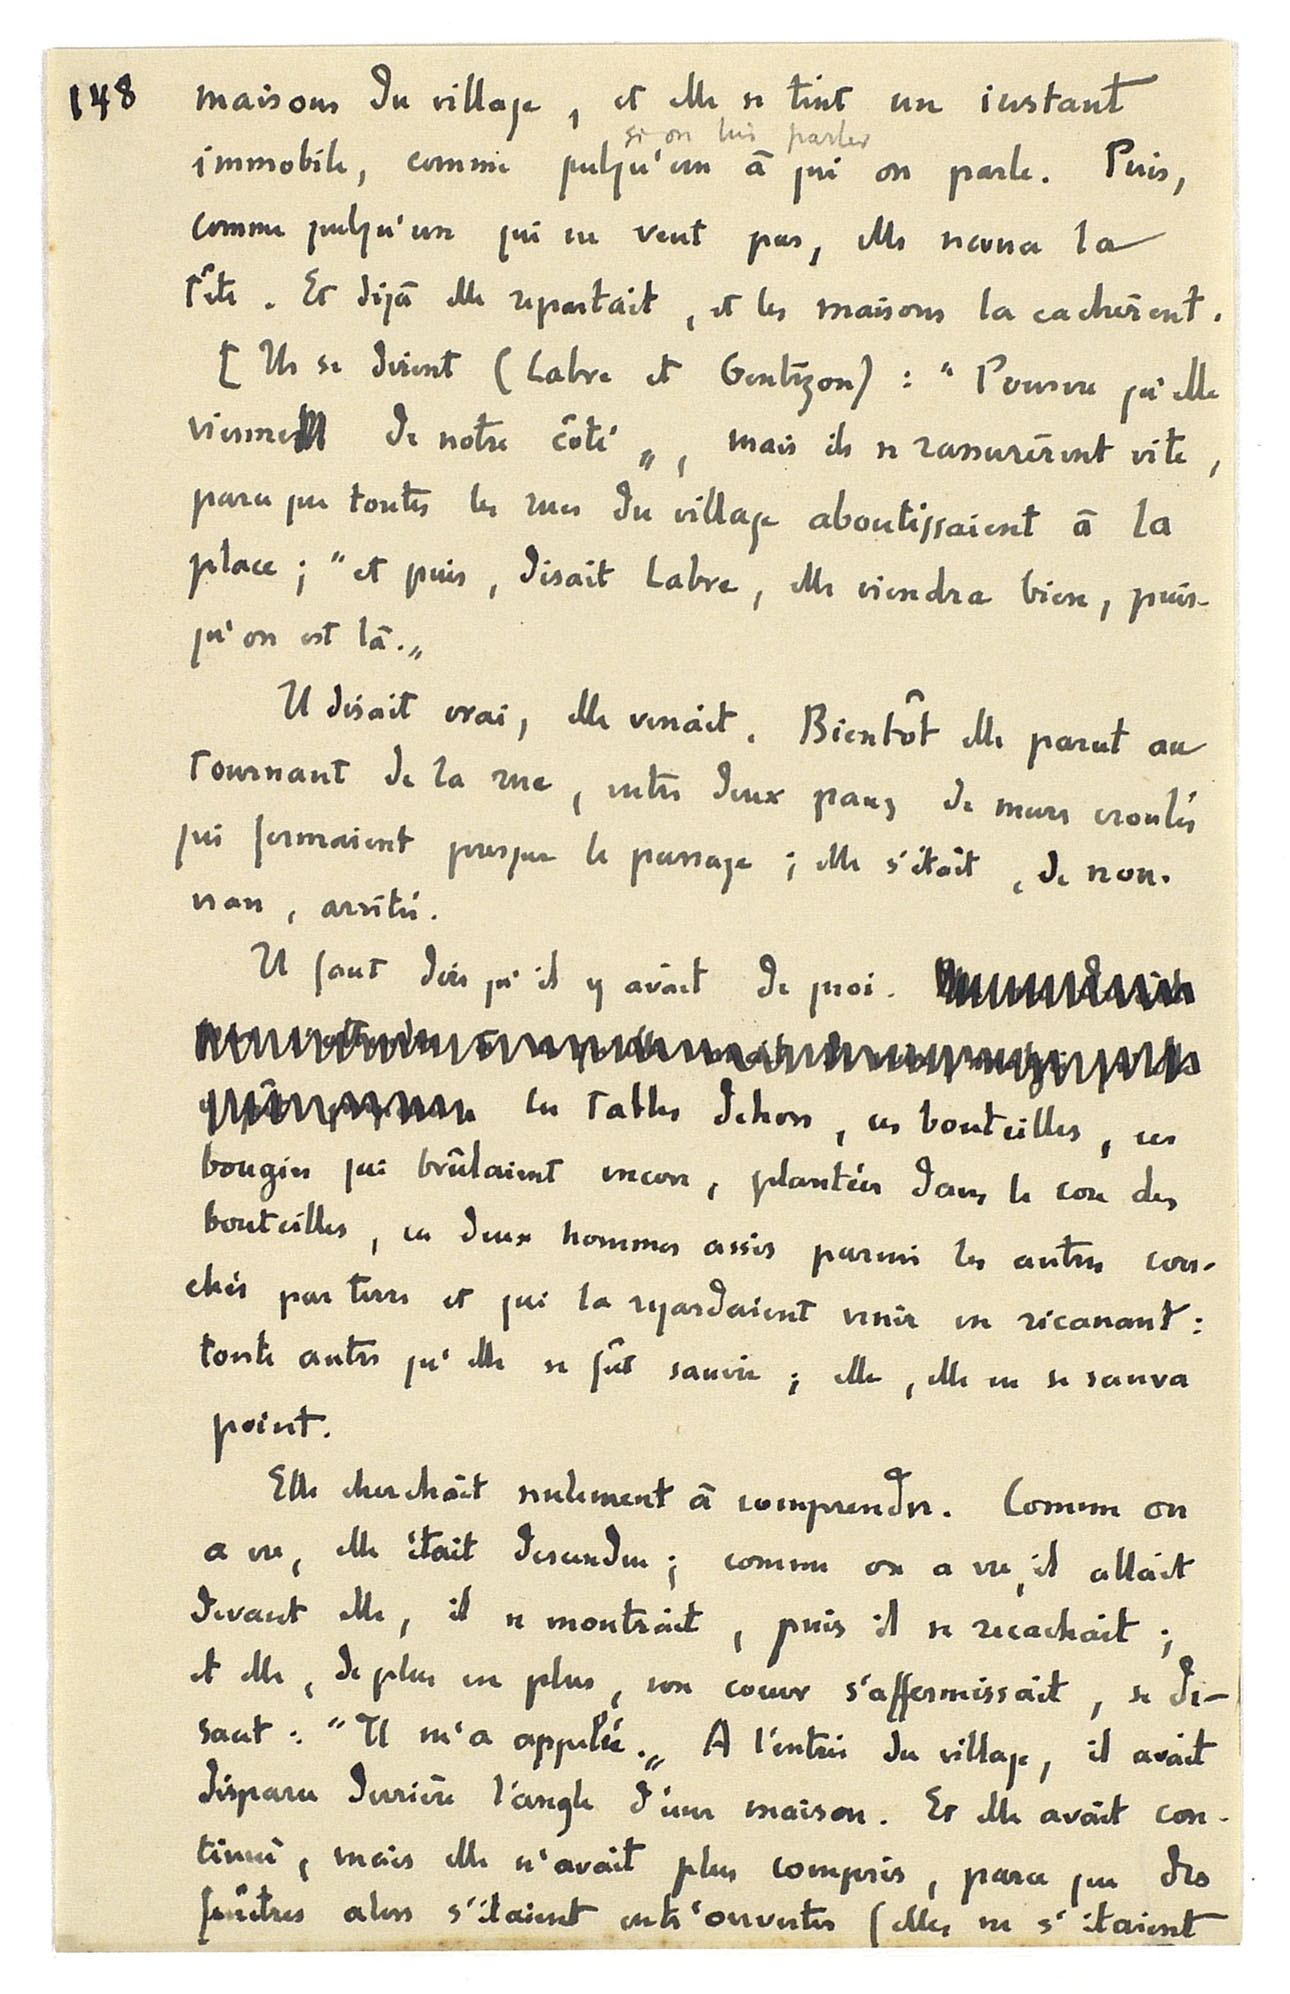 148
maisons du village, et elle se tint un instant
si on lui parler
immobile, comme quelqu'un à qui on parle. Puis,
comme quelqu'un qui ne veut pas, elle secoua la
tête. Et déjà elle repartait, et les maisons la cachèrent.
[ Ils se dirent (Labre et Gentizon) : " Pourvu qu'elle
vienne de notre côté ", mais ils se rassurèrent vite,
parce que toutes les rues du village aboutissaient à la
place ; " et puis, disait Labre, elle viendra bien, puis-
qu'on est là. "
Il disait vrai, elle venait. Bientôt elle parut au
tournant de la rue, entre deux pans de murs croulés
qui fermaient presque le passage ; elle s'était, de nou-
veau, arrêtée.
Il faut dire qu'il y avait de quoi.
Ces tables dehors, ces bouteilles, ces
bougies qui brûlaient encore, plantées dans le cou des
bouteilles, ces deux hommes assis parmi les autres cou-
chés par terre et qui la regardaient venir en ricanant :
toute autre qu'elle se fût sauvée ; elle, elle ne se sauva
point.
Elle cherchait seulement à comprendre. Comme on
a vu, elle était descendue ; comme on a vu, il allait
devant elle, il se montrait, puis il se recachait ;
et elle, de plus en plus, son coeur s'affermissait, se di-
sant : " Il m'a appelée. " A l'entrée du village, il avait
disparu derrière l'angle d'une maison. Et elle avait con-
tinué, mais elle n'avait plus compris, parce que des
fenêtres alors s'étaient entr'ouvertes (elles ne s'étaient